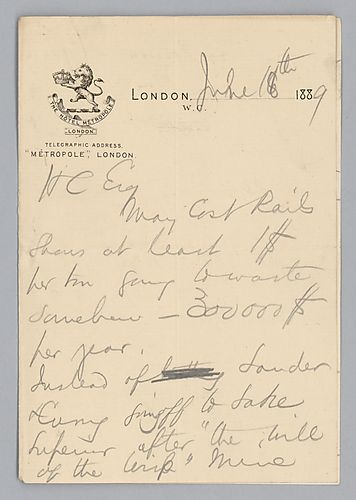 THE HOTEL METROPOLE
LONDON
TELEGRAPHIC ADDRESS.
"METROPOLE", LONDON.
LONDON, June 18th 1889
W.C.
H C Esq
May Cost Rails
Shows at least 1$
per ton going to waste
somehow — 300000$
per year.
Instead of Lauder
&Curry going off to Lake
Superior after "the Will
of the Wisp" Mine